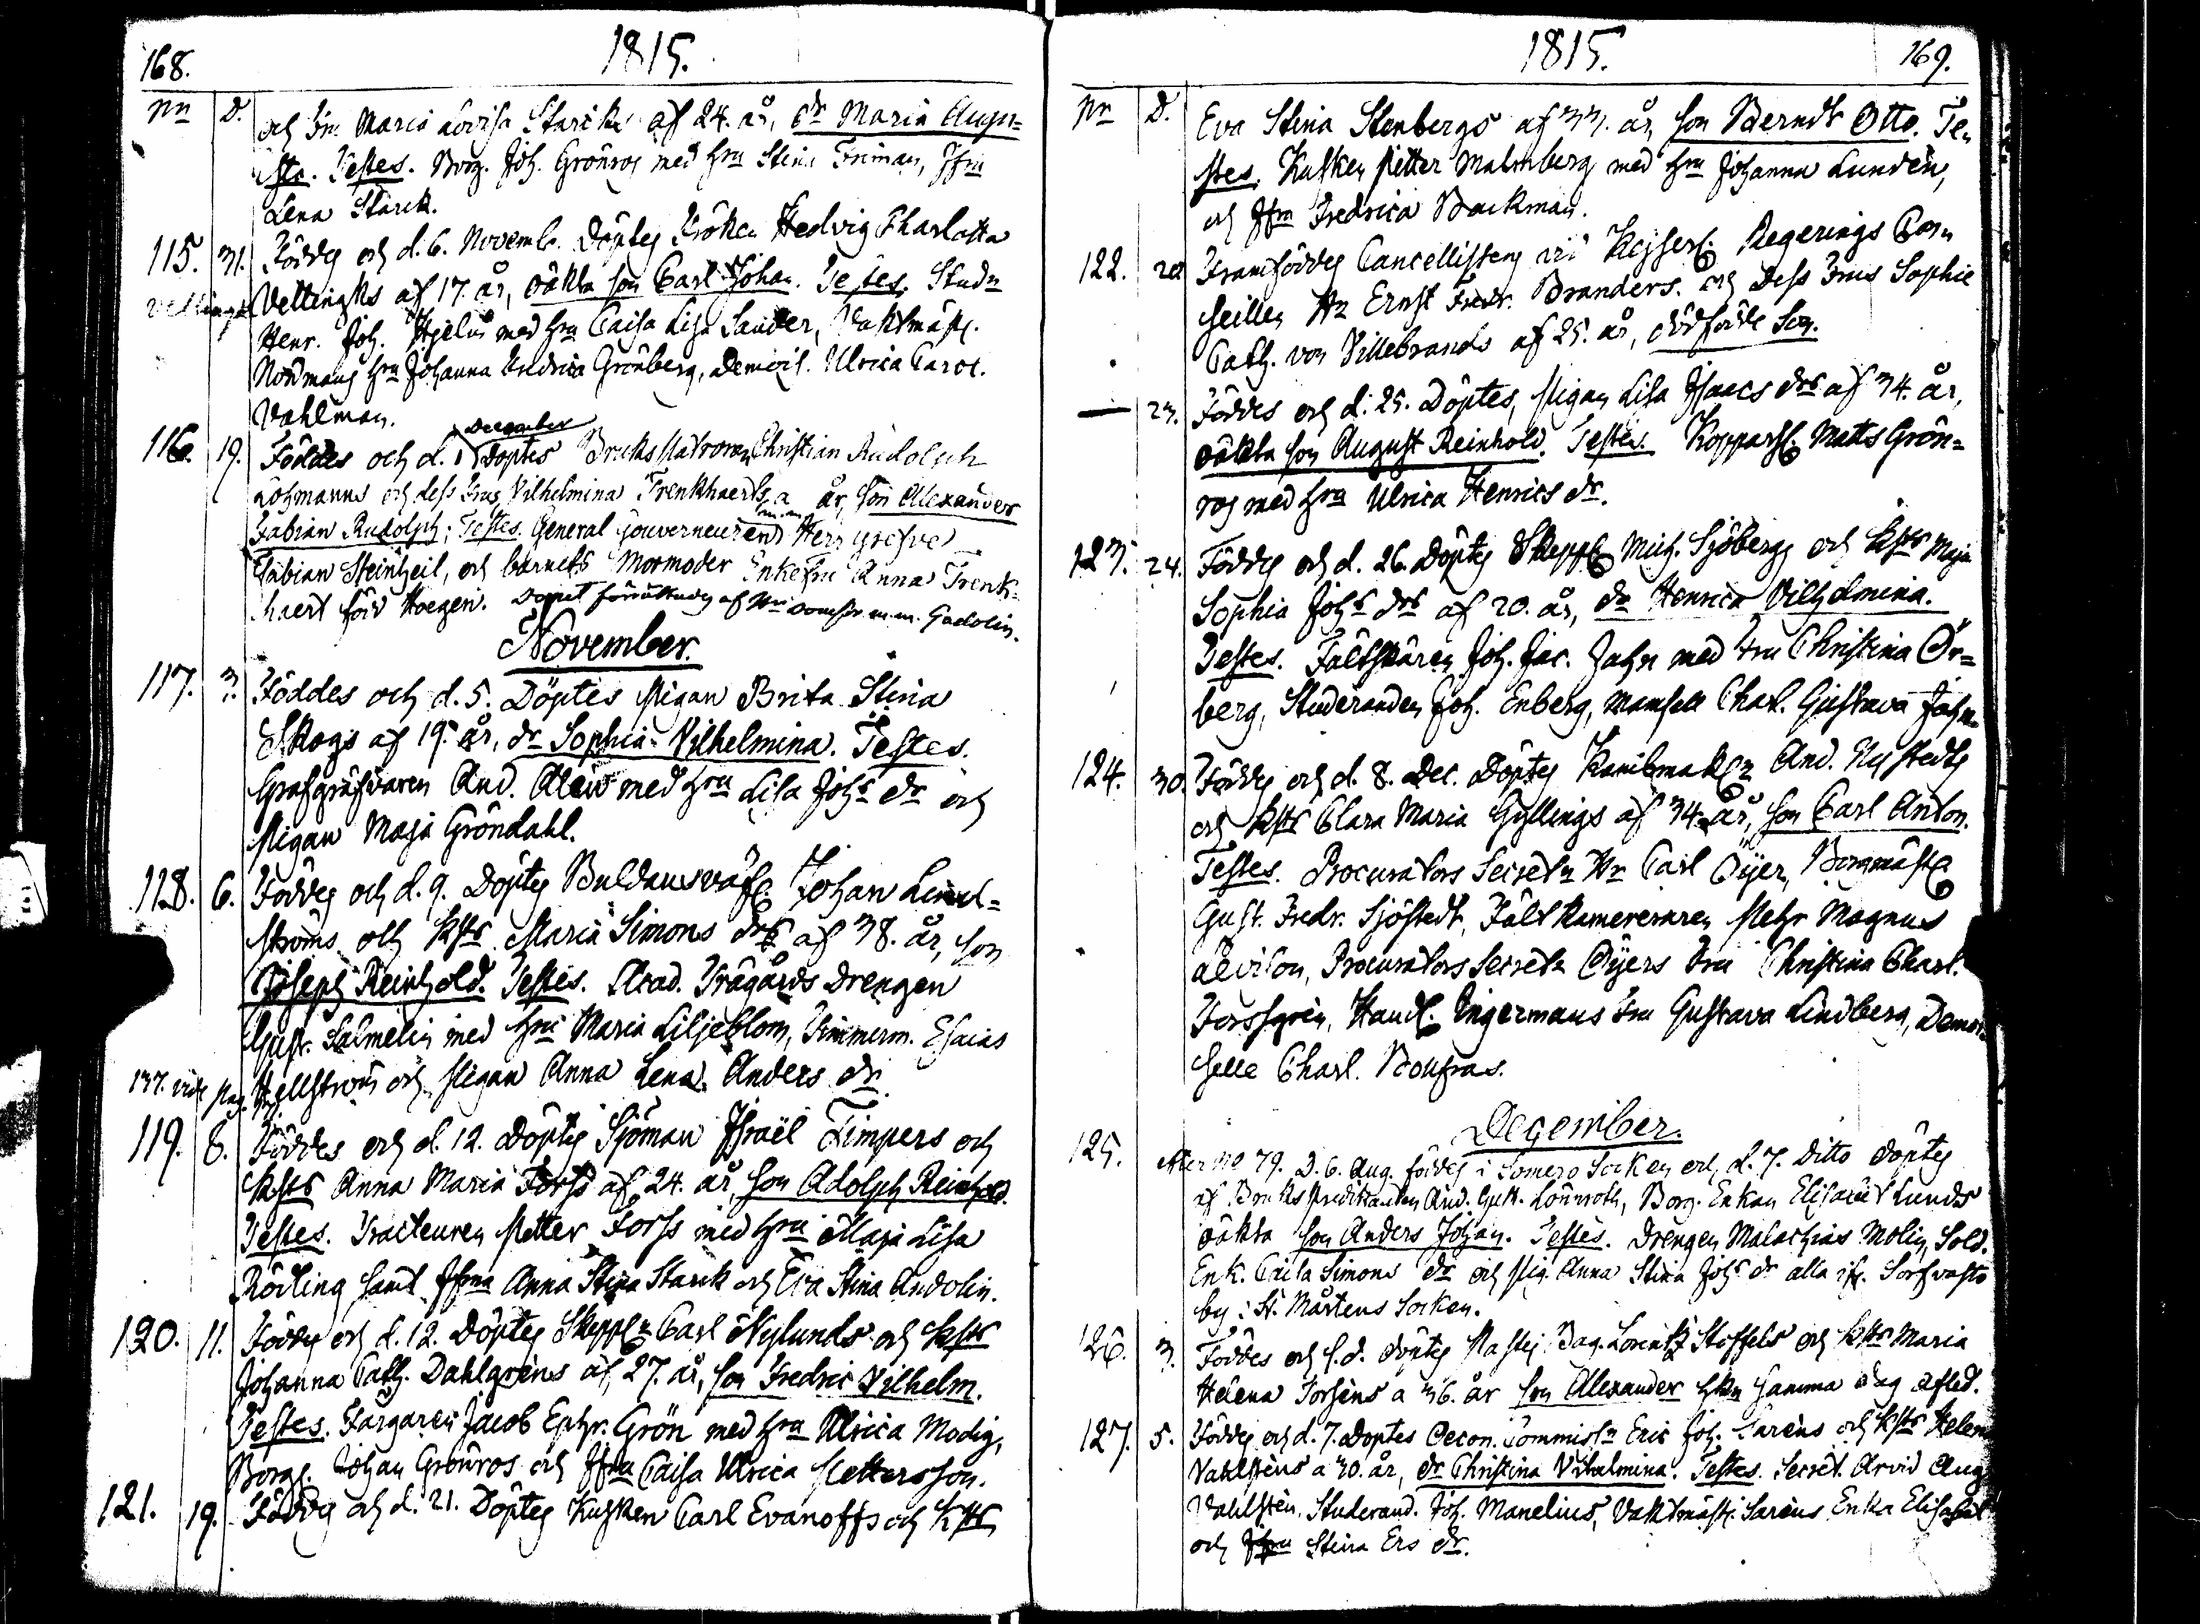 168.
1815.
Nn D.
och Fru Maria Lovisa Starcks af 24. år, dr Maria Augu=
sta. Testes. Borg. Joh. Grönros med hru Stina Friman, Jfru
Lena Starck.
115. 31. Föddes och d. 6. Novemb. Döptes Fröken Hedvig Charlotta
Vellingks af 17. år, oäkta son Carl Johan. Testes. Studn
Henr. Joh. Hjelus med hru Caisa Lisa Sander, Vaktmäst.
Nordmans hru Johanna Fredrica Grönberg, Demois. Ulrica Carol.
Vahlman.
116. 19. Föddes och d. 1 December Döptes Bruks Patronen Christian Rudolph
Lohmanns och dess Frus Vilhelmina Trenkhaerts a år, son Alexander
Fabian Rudolph; Testes. General Gouverneuren Herr Grefve
Fabian Steinheil, och barnets Mormoder Enkefru Anna Trenk-
haert född Hoegen. Dopet förrättades af Hr Domhr m.m. Gadolin.
November.
117. 3. Föddes och d. 5. Döptes Pigan Brita Stina
Skogs af 19. år, dr Sophia Vilhelmina. Testes.
Grafgräfvaren And. Alew med hru Lisa Johs dr och
Pigan Maja Gröndahl.
118. 6. Föddes och d. 9. Döptes Buldansväfv. Johan Lind=
ströms och hsts Maria Simons drs af 38. år, son
Joseph Reinhold. Testes. Acad. Trägårds Drengen
Gust. Salmelin med hru Maria Liljeblom, Timmerm. Esaias
137. vide pag. Hellström och Pigan Anna Lena Anders dr.
119. 8. Föddes och d. 12. Döptes Sjöman Israël Timpers och
hsts Anna Maria Forss af 24. år, son Adolph Reinhold.
Testes. Tracteuren Petter Forss med hru Maja Lisa
Rödling samt Jfruna Anna Stina Starck och Eva Stina Andolin.
120. 11. Föddes och d. 12. Döptes Skeppn Carl Nylunds och hsts
Johanna Cath. Dahlgrens af 27. år, son Fredric Vilhelm.
Testes. Färgaren Jacob Ephr. Grön med hru Ulrica Modig,
Borg. Johan Grönros och Jfru Caisa Ulrica Pettersson.
121. 19. Föddes och d. 21. Döptes Kusken Carl Evanoffs och hsts
1815.
169.
Nn D.
Eva Stina Stenbergs af 33. år, son Berndt Otto. Te-
stes. Kusken Petter Malmberg med hru Johanna Lundén,
och Jfru Fredrica Backman.
122. 20 Framföddes Cancellisten vid Kejserl. Regerings Con-
seillen Hr Ernst Fredr. Branders och Dess Frus Sophie
Cath. von Villebrands af 25. år, dödfödde Son.
— 23. Föddes och d. 25. Döptes, Pigan Lisa Isaacs drs af 34. år,
oäkta son August Reinhold. Testes. Kopparsl. Matts Grön=
ros med hru Ulrica Henrics dr.
123. 24. Föddes och d. 26. Döptes Skepp Mich. Sjöbergs och hsts Maja
Sophia Johs drs af 20. år, dr Henrica Vilhelmina.
Testes. Fältskären Joh. Jac. Jahn med Fru Christina Ör=
berg, Studeranden Joh. Enberg, Mamsell Charl. Gustava Jahn.
124. 30. Föddes och d. 8. Dec. Döptes Kambmak And. Nystedts
och hsts Clara Maria Gyllings af 34. år, son Carl Anton.
Testes. Procurators Secretn Hr Carl Öijer, Borgmäst
Gust. Fredr. Sjöstedt, Fält Kamereraren Pehr Magnus
Levison, Procurators Secretn Öijers Fru Christina Charl.
Forssgrén, Handl. Ingermans Fru Gustava Lindberg, Demoi-
selle Charl. Bonfras.
December.
125. efter No 79. D. 6. Aug. föddes i Somero Socken och d. 7. Ditto döptes
af Bruks Predikanten And. Gust. Lönnroth, Borg. Enkan Elisabet Lunds
oäkta son Anders Johan. Testes. Drengen Malachias Molin, Sold.
Enk. Caisa Simons dr och Pig. Anna Stina Johs dr alla ifr. Sorfvasto
by i St. Mårtens Socken.
126. 3. Föddes och s. d. döptes Pastej Bag. Lorentz Stoffels och hsts Maria
Helena Forséns a 36. år son Alexander samma dag afled.
127. 5. Föddes och d. 7. Döptes Oecon. Commissn Eric Joh. Saréns och hsts Helena
Vahlsténs a 30. år, dr Christina Vilhelmina. Testes. Secret. Arvid Aug.
Vahlstén, Studerand. Joh. Manelius, Vaktmäst. Saréns Enka Elisabet
och Jfru Stina Ers dr.